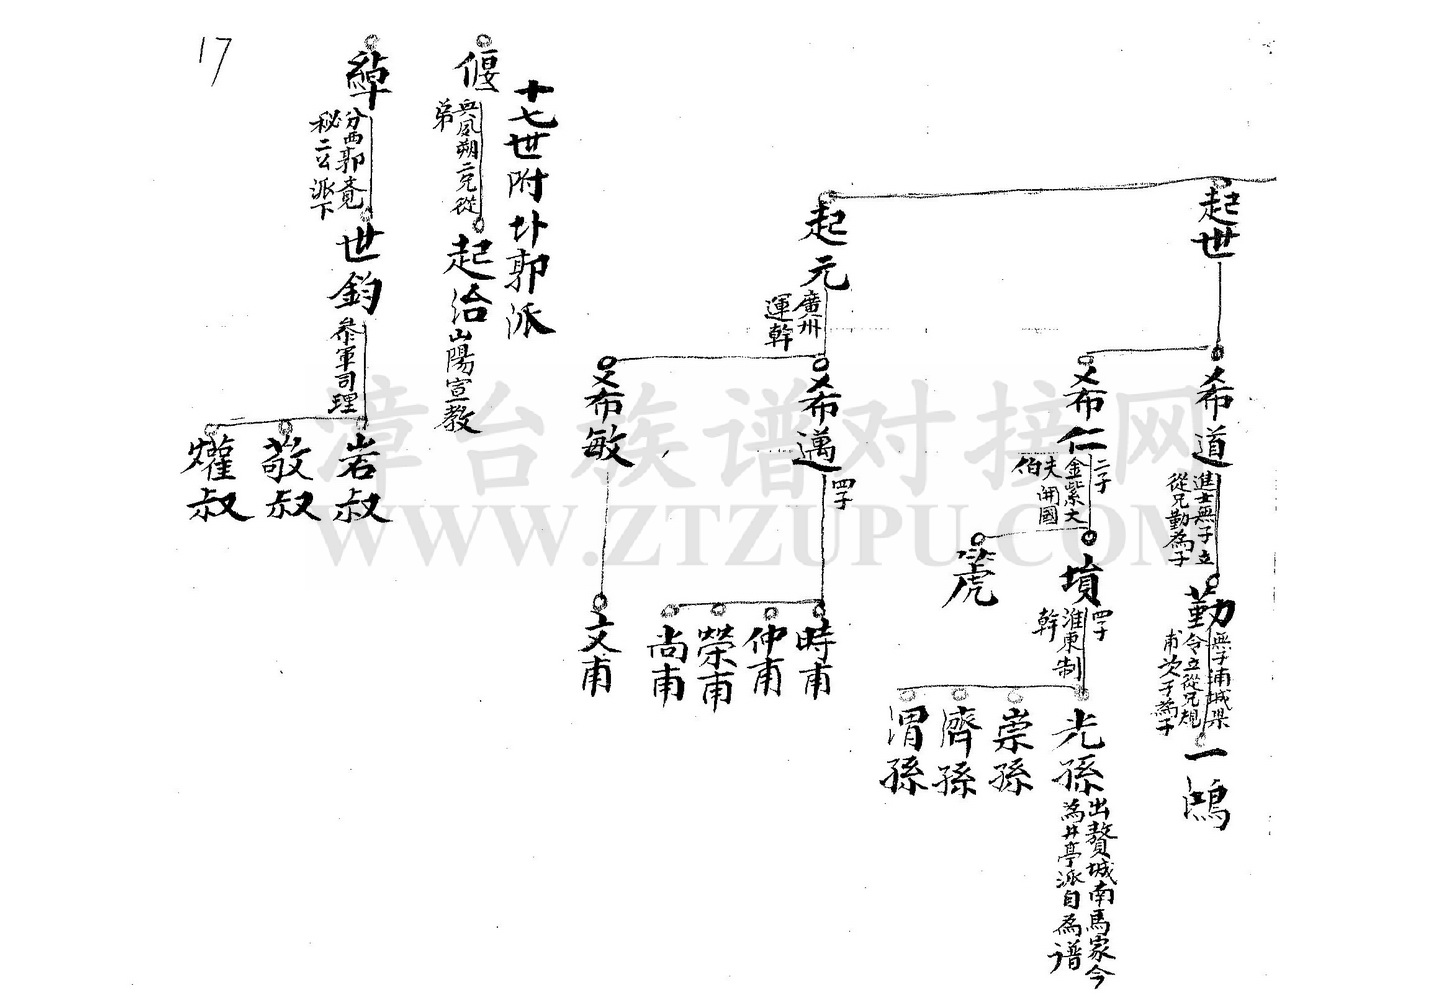 17
起世
希道
進士無子立
從兄勤為子
勤
無子浦城渠
令立從兄規
甫次子為子
一鴻
希仁
二子
金紫大
夫開國
伯
塤
四子
淮東制
幹
光孫
出贅城南馬家今
為井亭派自為譜
崇孫
濟孫
渭孫
箎
起元
廣州
運幹
希邁
四子
時甫
仲甫
榮甫
尚甫
希敏
文甫
十七世附圤郭派
偃
與夙朔二兄從
弟
起治
山陽宣教
綽
分西郭竟
秘二公派下
世鈞
叅軍司理
岩叔
敬叔
爟叔
漳台族谱对接网
WWW.ZTZUPU.COM